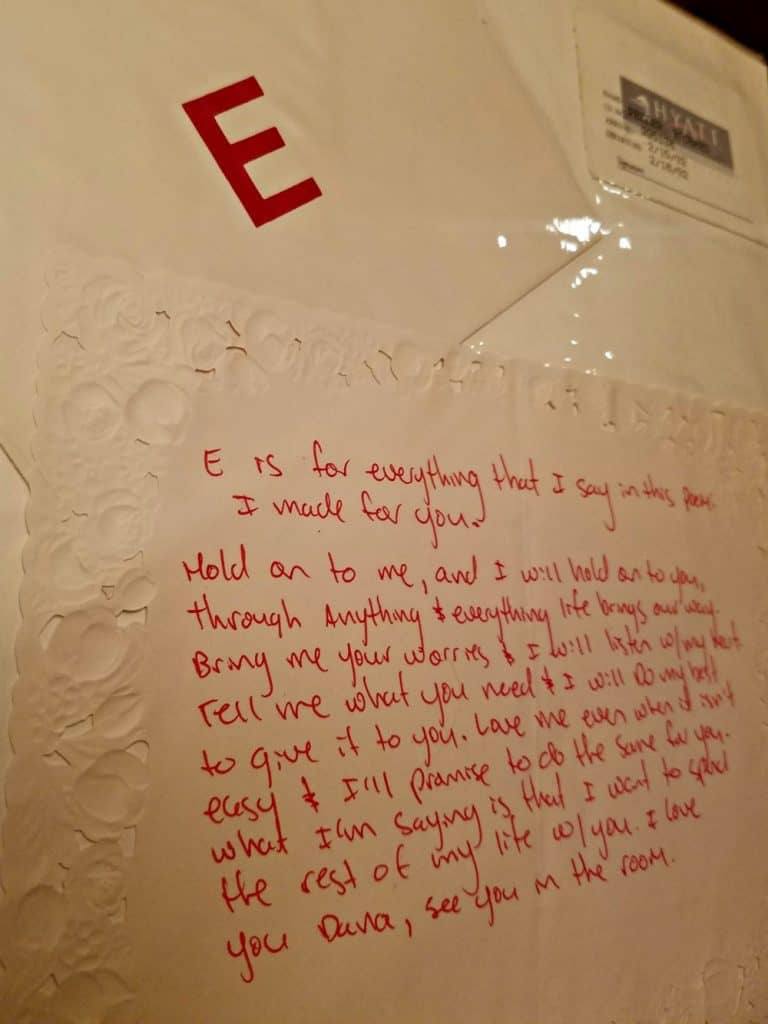 E
HYATT
2/15/92
2/16/92
E is for everything that I say in this poem
I made for you.
Hold on to me, and I will hold on to you,
through Anything & everything life brings our way.
Bring me your worries & I will listen w/my heart
Tell me what you need & I will Do my best
to give it to you. Love me even when it isn't
easy & I'll promise to do the same for you.
what I'm saying is that I want to spend
the rest of my life w/you. I love
you Dana, see you in the room.